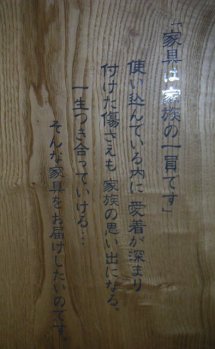 「家具は家族の一員です」
使い込んでいる内に 愛着が深まり
付けた傷さえも 家族の思い出になる、
一生つき合っていける…
そんな家具をお届けしたいのです。